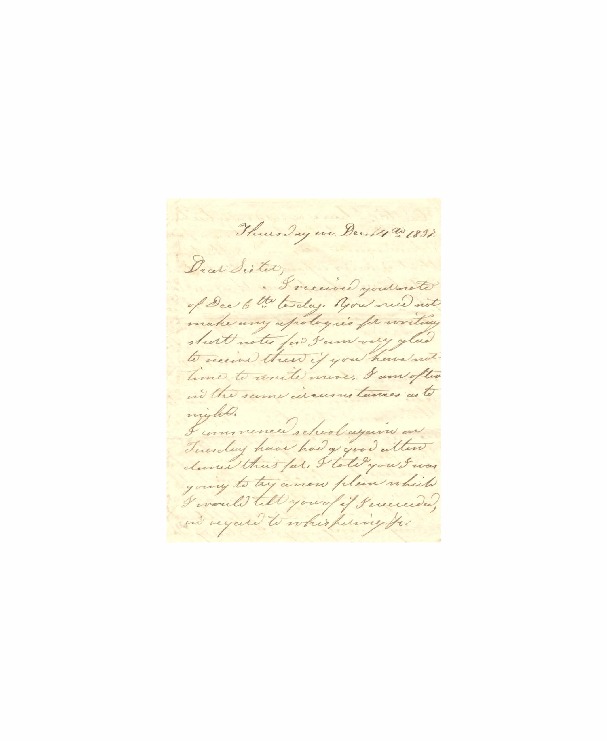 Thursday eve Dec. 14th
Dear Sister,
I received your note
of Dec 6th to day. You need not
make any apologies for writing
short notes for I am very glad
to receive them if you have not
time to write more. I am often
in the same circumstances as to
night.
I commenced school again on
Tuesday have had a good atten
dance thus far. I told you I was
going to try a new plan which
I would tell you of if I succeeded,
in regard to whispering &c